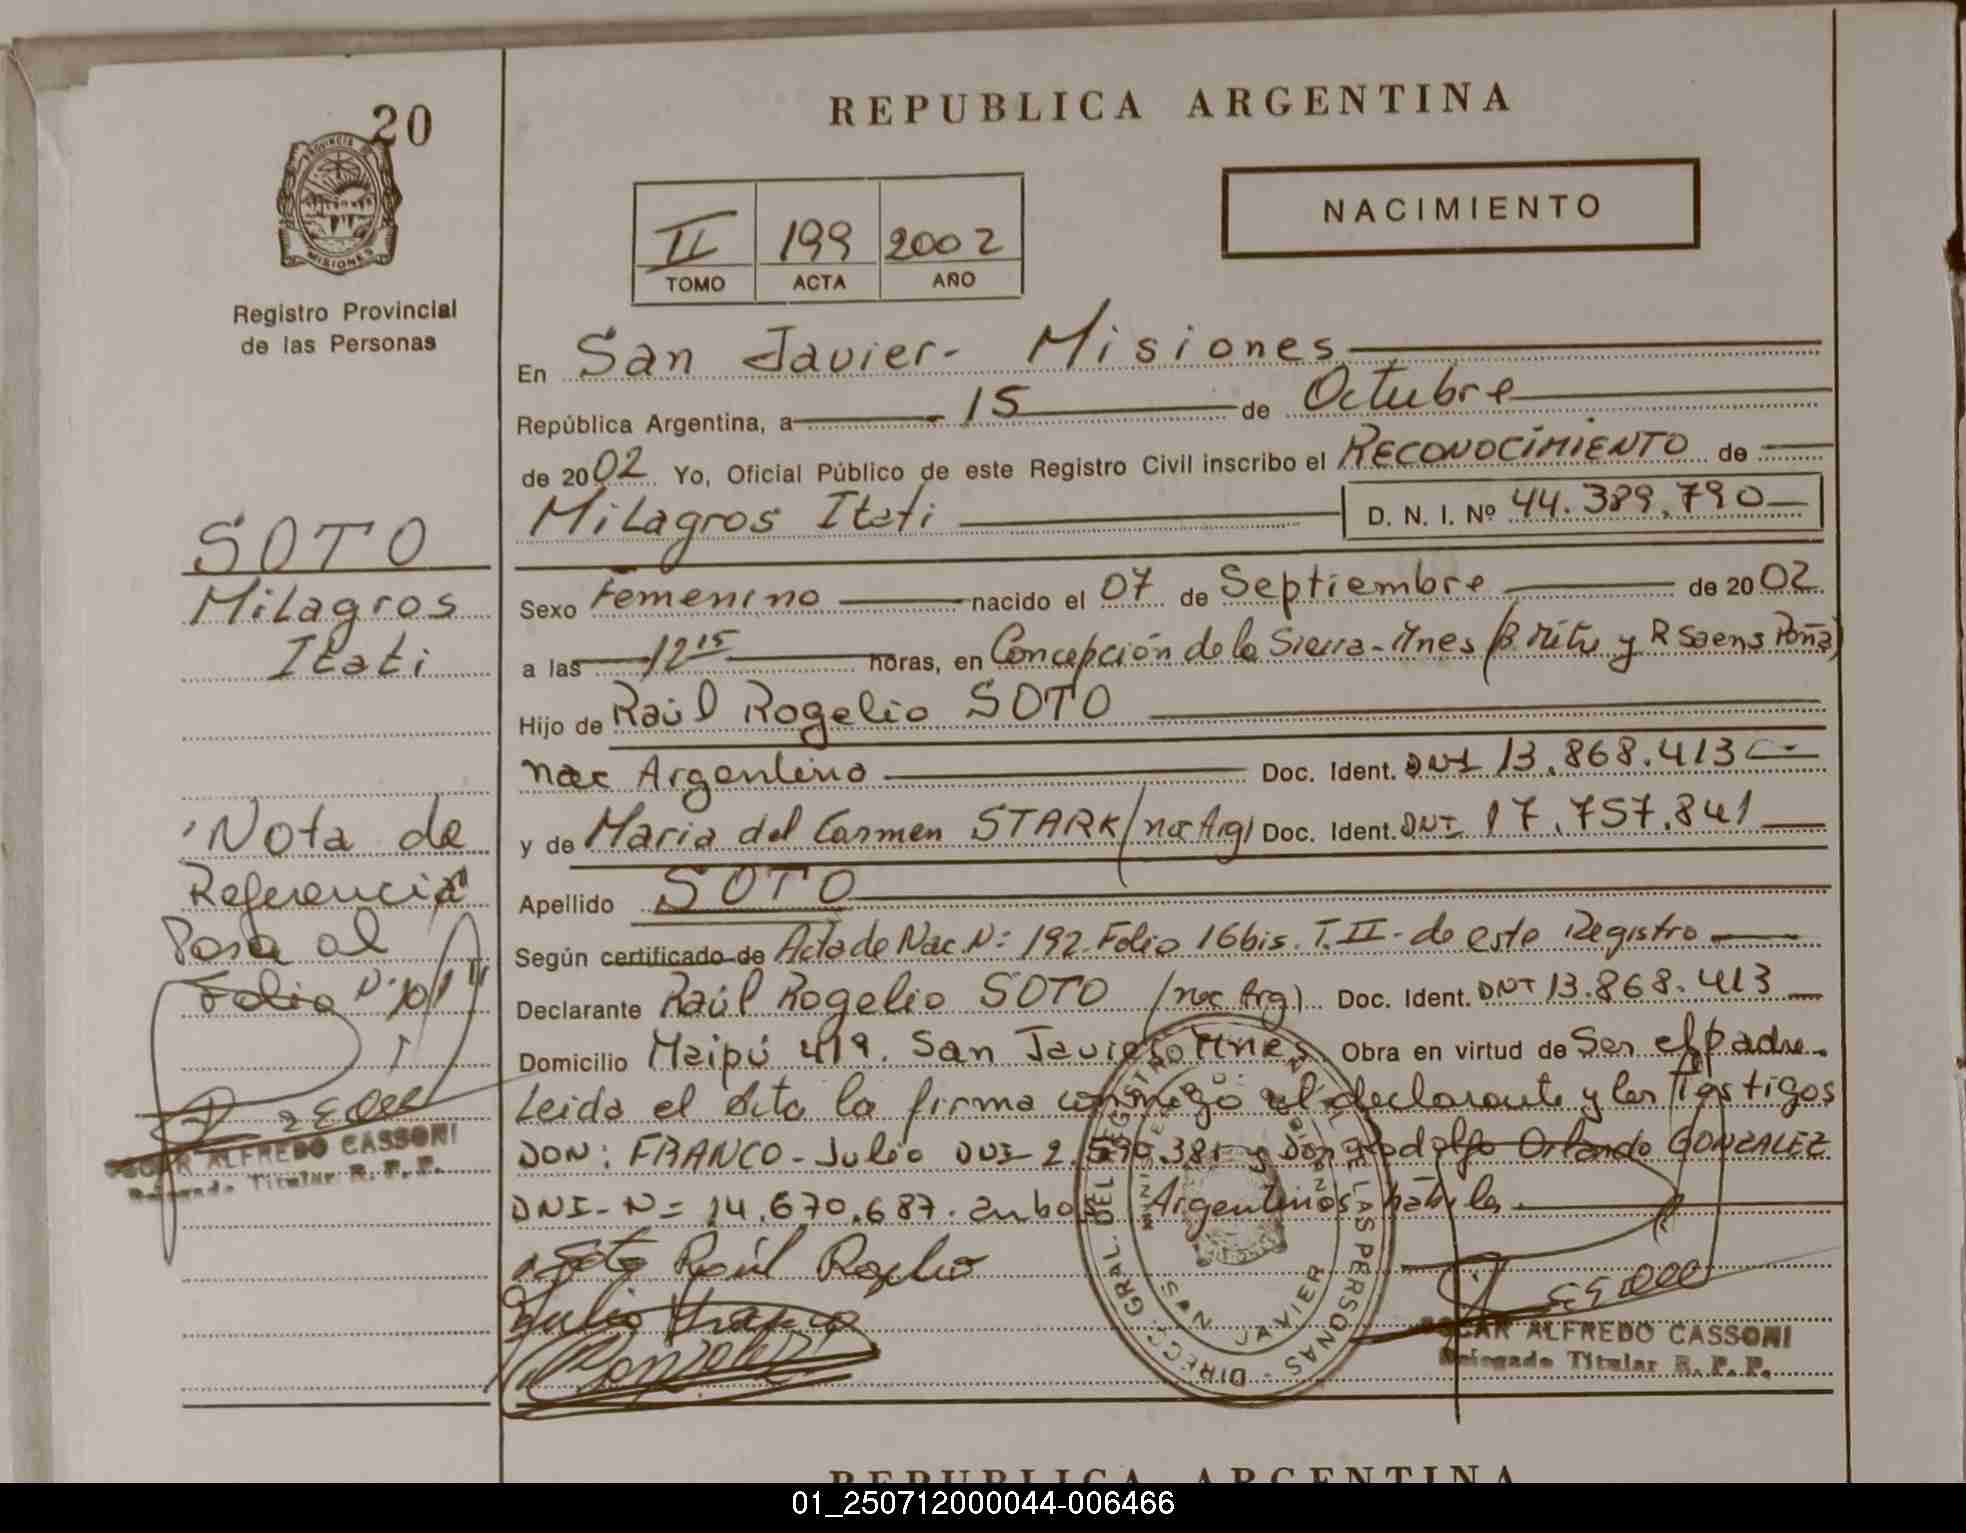 20
PROVINCIA DE
MISIONES
Registro Provincial
de las Personas
SOTO
Milagros
Itati
Nota de
Referencia
Pasa al
Folio Nº 101"
OSCAR ALFREDO CASSONI
Delegado Titular R. P. P.
REPUBLICA ARGENTINA
NACIMIENTO
II 199 2002
TOMO ACTA AÑO
En San Javier- Misiones
República Argentina, a 15 de Octubre
de 2002 Yo, Oficial Público de este Registro Civil inscribo el RECONOCIMIENTO de
Milagros Itati D. N. I. Nº 44.389.790
Sexo Femenino nacido el 07 de Septiembre de 2002
a las 12 15 horas, en Concepción de la Sierra-Mnes (B. Mitre y R Saens Peña)
Hijo de Raúl Rogelio SOTO
nac Argentino Doc. Ident. DNI 13.868.413
y de Maria del Carmen STARK (nac Arg) Doc. Ident. DNI 17.757.841
Apellido SOTO
Según certificado de Acta de Nac. Nº 192 Folio 16bis. T. II- de este Registro
Declarante Raúl Rogelio SOTO (nac Arg) Doc. Ident. DNI 13.868.413
Domicilio Maipú 419. San Javier Mnes. Obra en virtud de Ser el padre.
Leida el Acta la firma conmigo el declarante y los Testigos
DON: FRANCO - Julio DNI 2.590.381 y Don Rodolfo Orlando GONZALEZ
DNI-Nº 14.670.687. ambos Argentinos hábiles
Soto Raúl Rogelio
Julio Franco
Gonzalez
DIRECC. GRAL. DEL REGISTRO DE LAS PERSONAS
SAN JAVIER
OSCAR ALFREDO CASSONI
Delegado Titular R. P. P.
REPUBLICA ARGENTINA
01_250712000044-006466